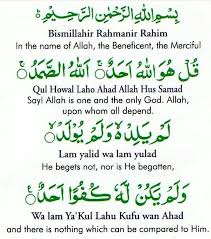 بِسْمِ اللهِ الرَّحْمٰنِ الرَّحِيْمِ
Bismillahir Rahmanir Rahim
In the name of Allah, the Beneficent, the Merciful
قُلْ هُوَ اللهُ اَحَدٌ اَللهُ الصَّمَدُ
Qul Howal Laho Ahad Allah Hus Samad
Say! Allah is one and the only God. Allah,
upon whom all depend.
لَمْ يَلِدْ وَلَمْ يُوْلَدْ
Lam yalid wa lam yulad
He begets not, nor is He begotten,
وَلَمْ يَكُنْ لَهٗ كُفُوًا اَحَدٌ
Wa lam Ya'Kul Lahu Kufu wan Ahad
and there is nothing which can be compared to Him.